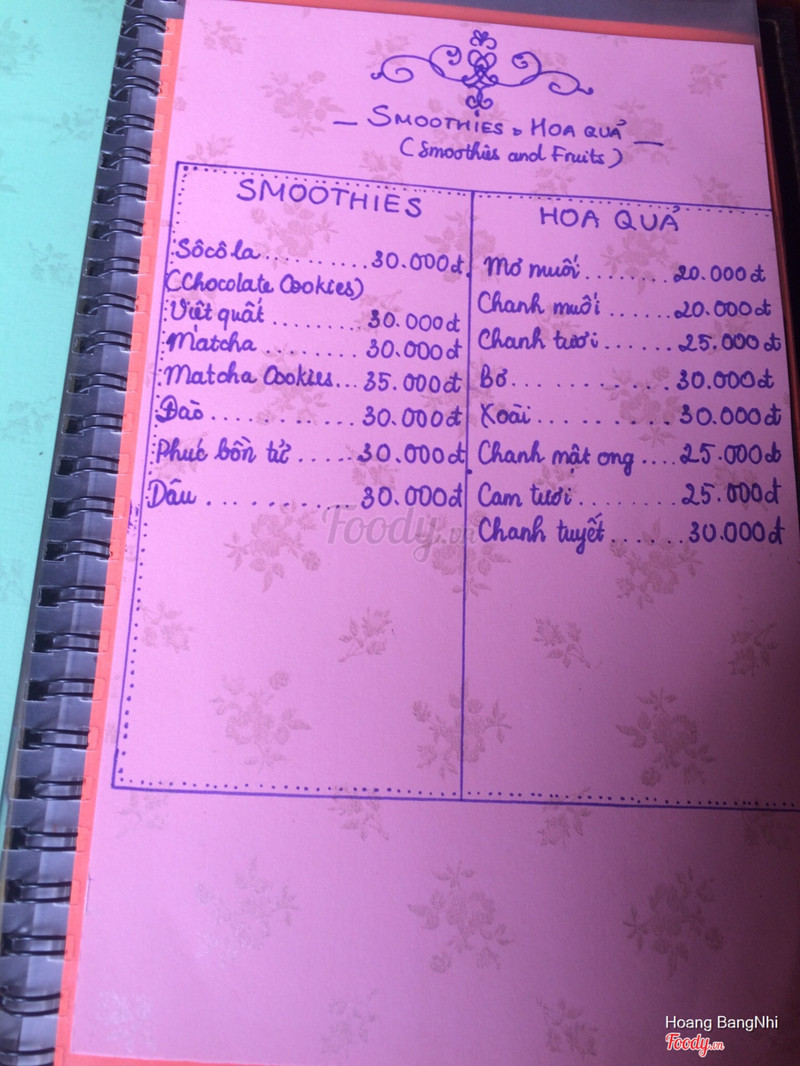 SMOOTHIES & HOA QUẢ
(Smoothies and Fruits)
SMOOTHIES
Sôcôla.......... 30.000đ
(Chocolate Cookies)
Việt quất ......... 30.000đ
Matcha .......... 30.000đ
Matcha Cookies... 35.000đ
Đào............. 30.000đ
Phúc bồn tử ..... 30.000đ
Dâu ............ 30.000đ
HOA QUẢ
Mơ muối........ 20.000đ
Chanh muối ...... 20.000đ
Chanh tươi....... 25.000đ
Bơ............. 30.000đ
Xoài ........... 30.000đ
Chanh mật ong .... 25.000đ
Cam tươi......... 25.000đ
Chanh tuyết ...... 30.000đ
Foody.vn
Hoang BangNhi
Foody.vn